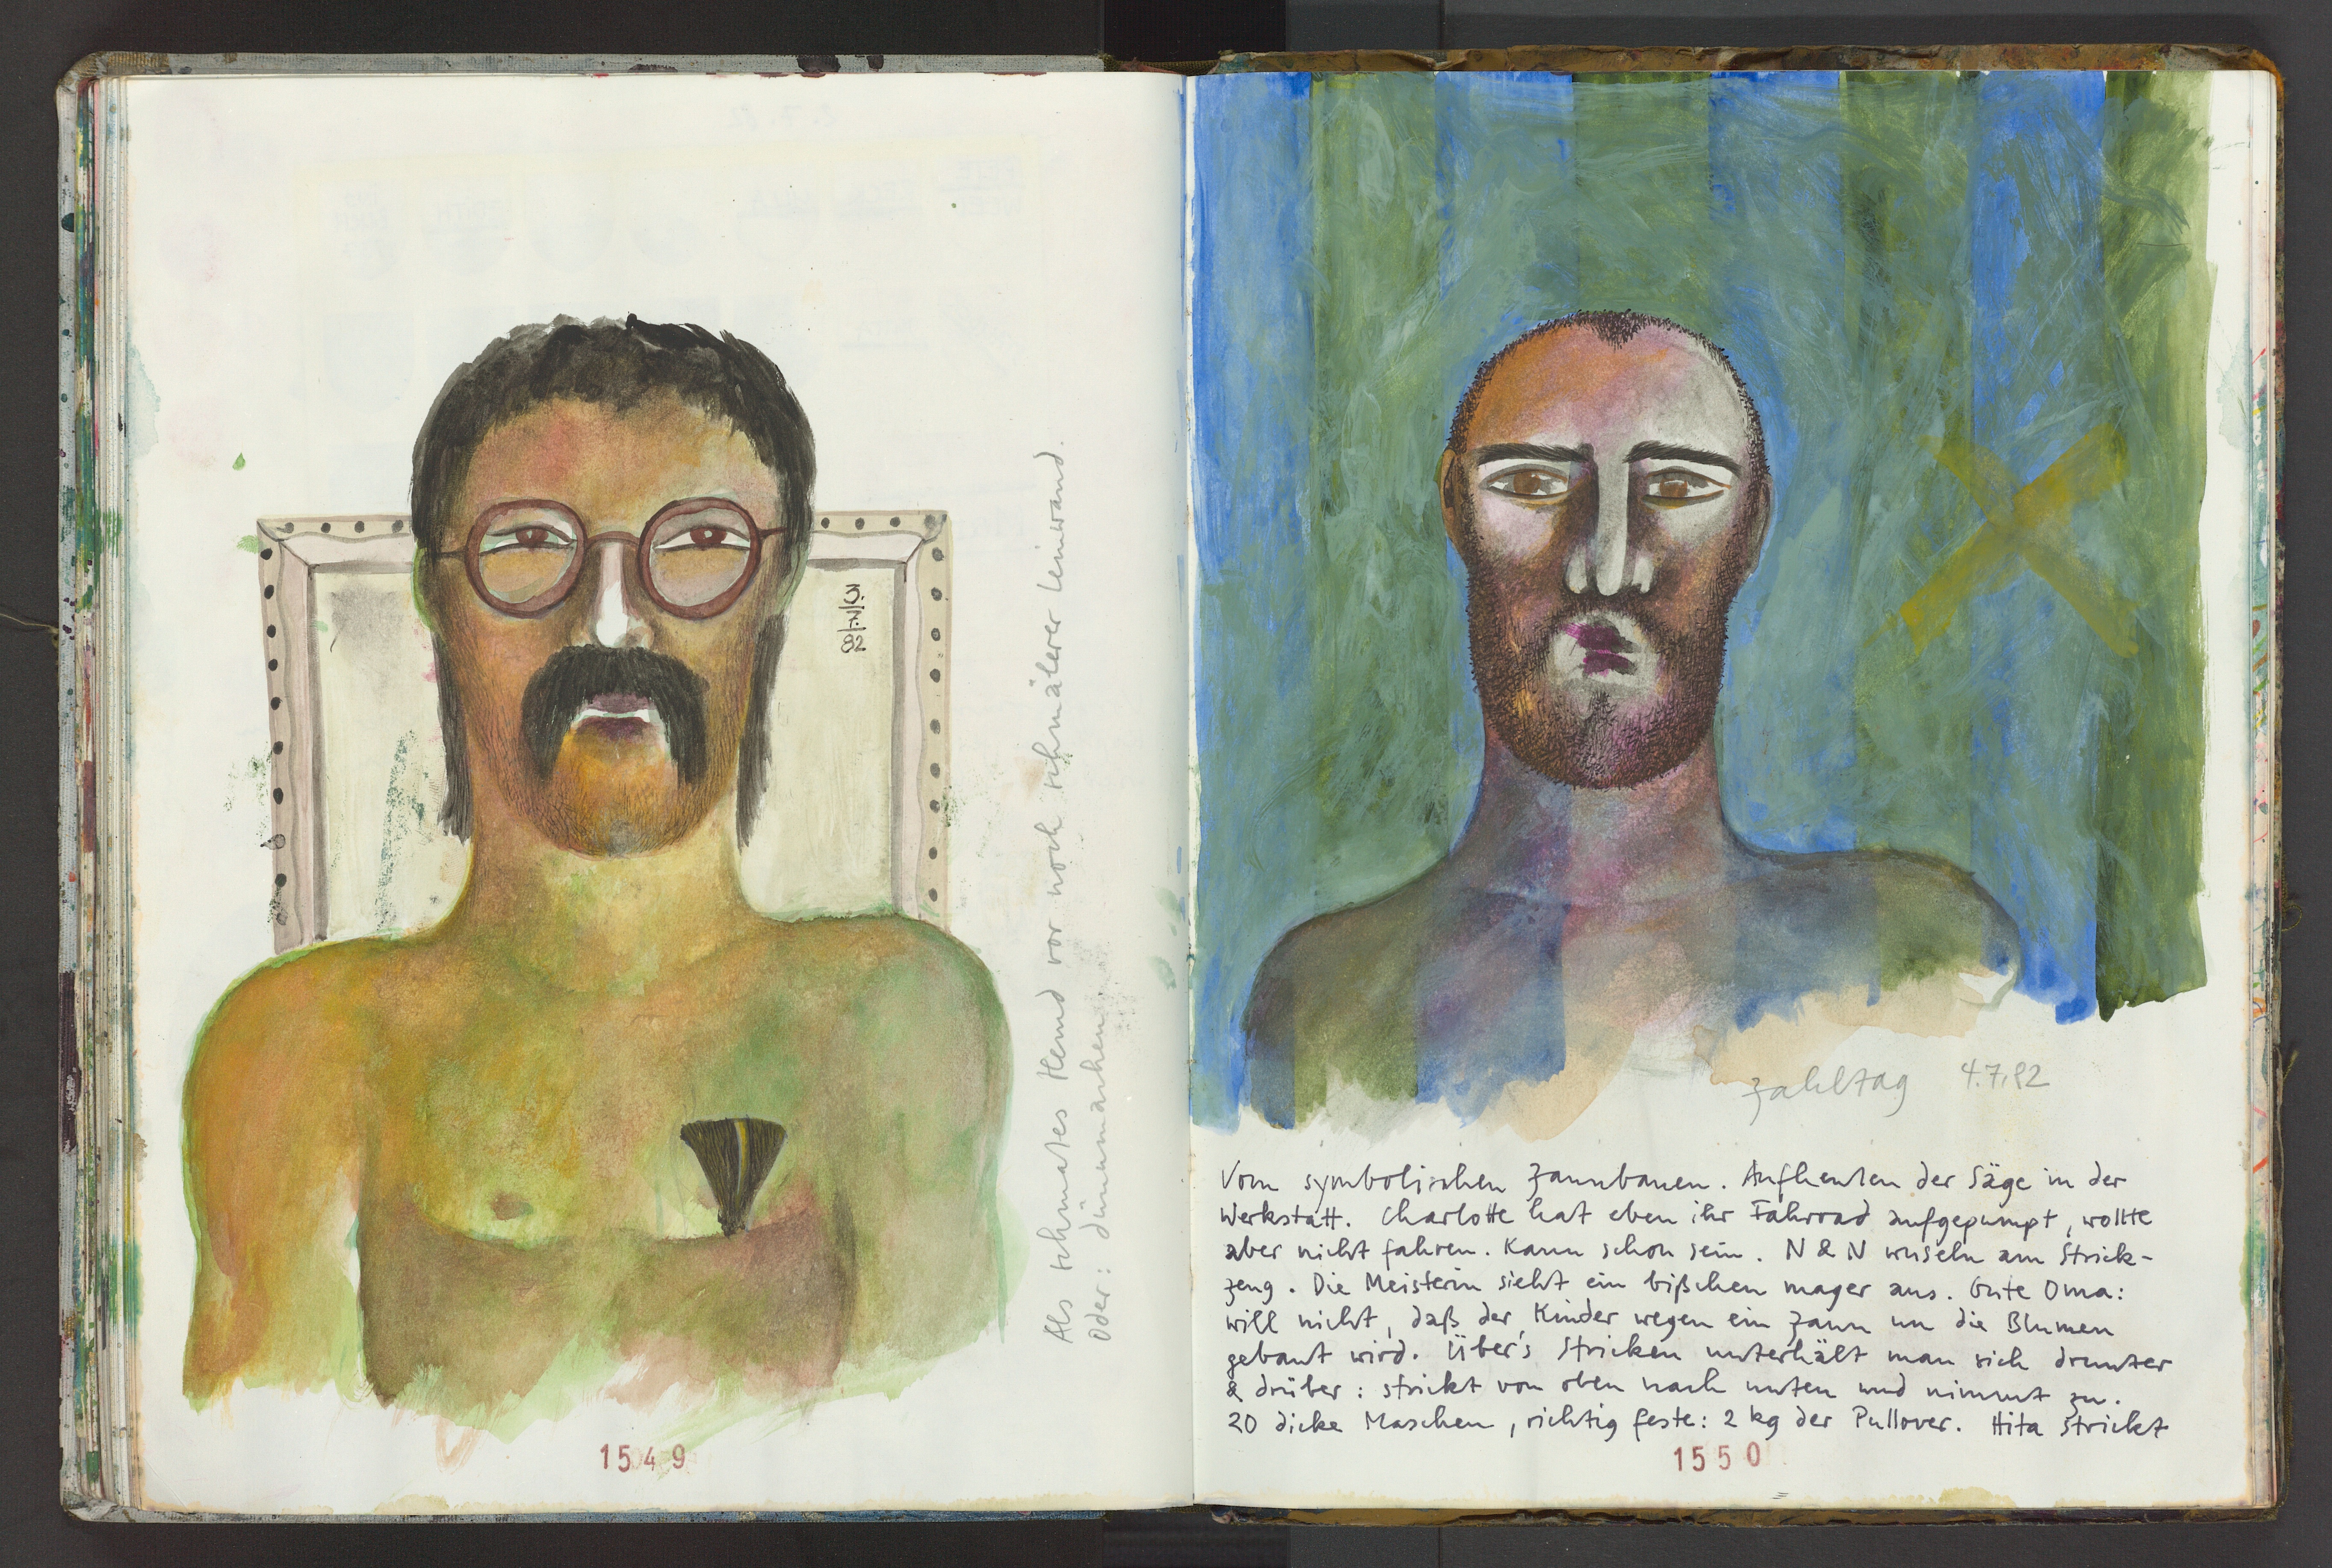 3.
7.
82
Als schmales Hemd vor noch schmälerer Leinwand.
Oder: dünnmachen.
1549
Zahltag 4.7.82
Vom symbolischen Zaunbauen. Aufheulen der Säge in der
Werkstatt. Charlotte hat eben ihr Fahrrad aufgepumpt, wollte
aber nicht fahren. Kann schon sein. N & N wuseln am Strick-
zeug. Die Meisterin sieht ein bißchen mager aus. Gute Oma:
will nicht, daß der Kinder wegen ein Zaun um die Blumen
gebaut wird. Über's Stricken unterhält man sich drunter
& drüber: strickt von oben nach unten und nimmt zu.
20 dicke Maschen, richtig feste: 2 kg der Pullover. Hita strickt
1550